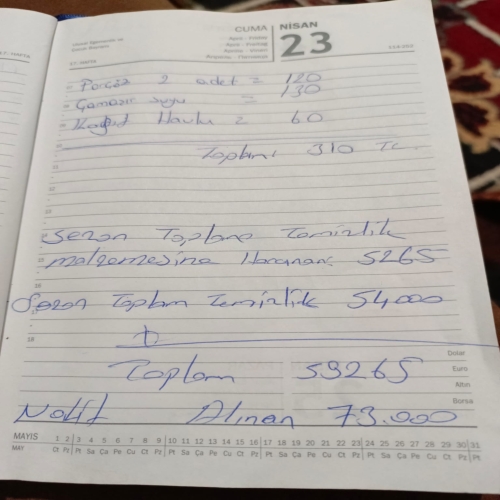 CUMA NİSAN 23
17. HAFTA
2 adet = 120
Çamaşır suyu = 130
Kağıt Havlu = 60
Toplam: 310 TL
Sezon Toplama Temizlik
malzemesine Harcanan: 5265
Sezon Toplam Temizlik 54000
+
Toplam 59265
Alınan 73.000
Dolar
Euro
Altın
Borsa
MAYIS 1 2 3 4 5 6 7 8 9 10 11 12 13 14 15 16 17 18 19 20 21 22 23 24 25 26 27 28 29 30 31
MAY Ct Pz Pt Sa Ça Pe Cu Ct Pz Pt Sa Ça Pe Cu Ct Pz Pt Sa Ça Pe Cu Ct Pz Pt Sa Ça Pe Cu Ct Pz Pt